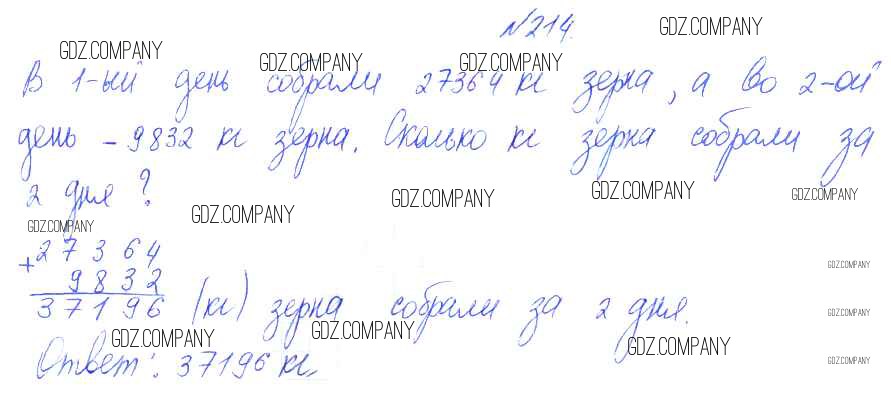 №214.
GDZ.COMPANY
GDZ.COMPANY
GDZ.COMPANY
GDZ.COMPANY
В 1-ый день собрали 27364 кг зерна, а во 2-ой
день - 9832 кг зерна. Сколько кг зерна собрали за
2 дня?
GDZ.COMPANY
GDZ.COMPANY
GDZ.COMPANY
GDZ.COMPANY
GDZ.COMPANY
+27364
9832
37196 (кг) зерна собрали за 2 дня.
GDZ.COMPANY
GDZ.COMPANY
GDZ.COMPANY
GDZ.COMPANY
GDZ.COMPANY
GDZ.COMPANY
Ответ: 37196 кг.